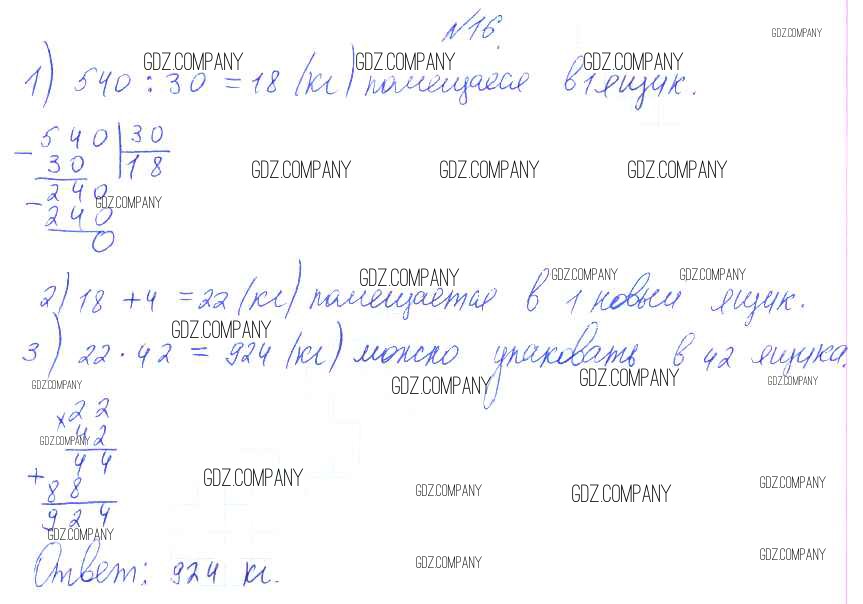 №16.
GDZ.COMPANY
GDZ.COMPANY GDZ.COMPANY GDZ.COMPANY
1) 540 : 30 = 18 (кг) помещаеся в 1 ящик.
- 540 | 30
30 | 18
GDZ.COMPANY GDZ.COMPANY GDZ.COMPANY
- 240
GDZ.COMPANY
240
0
GDZ.COMPANY GDZ.COMPANY GDZ.COMPANY
2) 18 + 4 = 22 (кг) помещается в 1 новый ящик.
GDZ.COMPANY
3) 22 · 42 = 924 (кг) можно упаковать в 42 ящика.
GDZ.COMPANY GDZ.COMPANY GDZ.COMPANY GDZ.COMPANY
× 22
42
GDZ.COMPANY
+ 44
88
GDZ.COMPANY GDZ.COMPANY GDZ.COMPANY GDZ.COMPANY
924
GDZ.COMPANY
GDZ.COMPANY GDZ.COMPANY
Ответ: 924 кг.